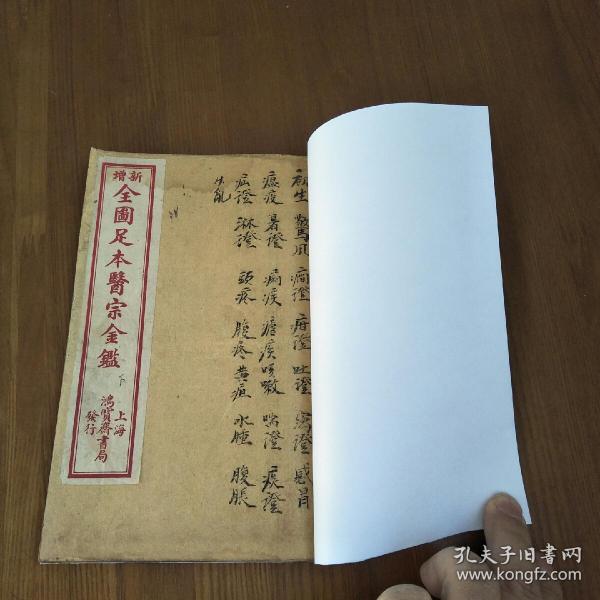 新增
全圖足本醫宗金鑑
下
上海
鴻寶齋書局
發行
初生 驚風 癇證 疳證 吐證 瀉證 感冒
瘟疫 暑證 痢疾 瘧疾 咳嗽 喘證 痰證
疝證 淋證 頭疼 腹疼 黄疸 水腫 腹脹
孔夫子旧书网
www.kongfz.com